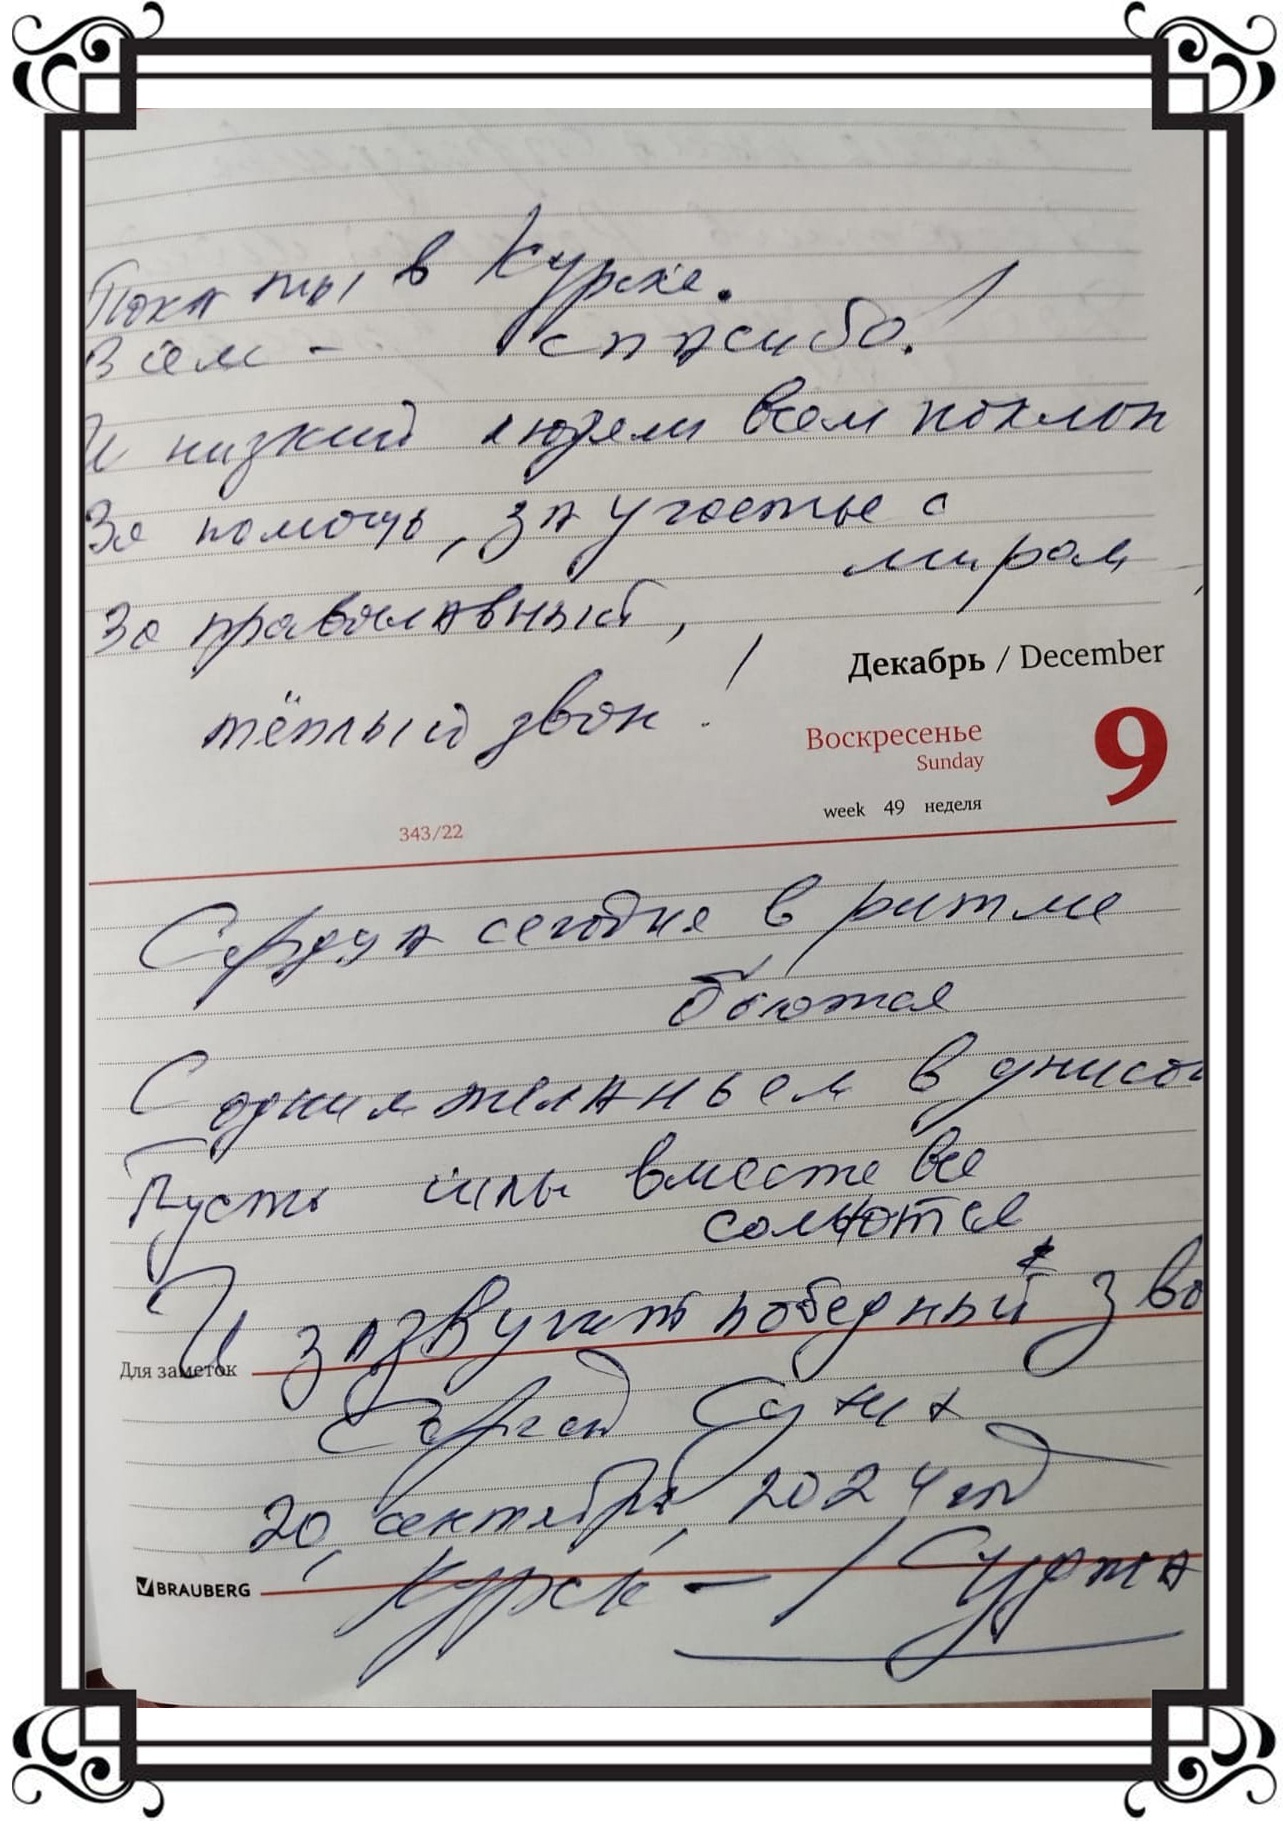 Пока ты в Курске.
Всем - спасибо!
И низкий людям всем поклон
За помощь, за участье с
миром,
За православный,
тёплый звон!
Декабрь / December
Воскресенье
Sunday
9
week 49 неделя
343/22
Сердца сегодня в ритме
бьются
С одним желаньем в унисон
Пусть силы вместе все
сольются
И зазвучит победный зво
Для заметок
Сергей
20 сентября, 2024 год
BRAUBERG
Курск - Суджа